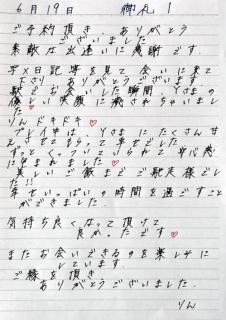 6月19日 御礼!
ご予約頂き ありがとう
ございました
素敵な出逢いに感謝です.
写メ日記等を見て 会いに来て
下さり ありがとうございます
駅でお会いした瞬間 Yさまの
優しい笑顔に癒されちゃいました
りん ドキドキ♡
プレイ中は、Yさまに たくさん甘え
させてもらって 幸せでした
ずっとくっついていられて 安心感
に包まれました♡
美しい ご飯まで ご馳走様でし
た!!
幸せいっぱいの時間を過ごすこと
ができました.
気持ち良くなって頂けて
良かったです♡
またお会いできるのを楽しみに
しています.
ご縁を頂き
ありがとうございました.
りん